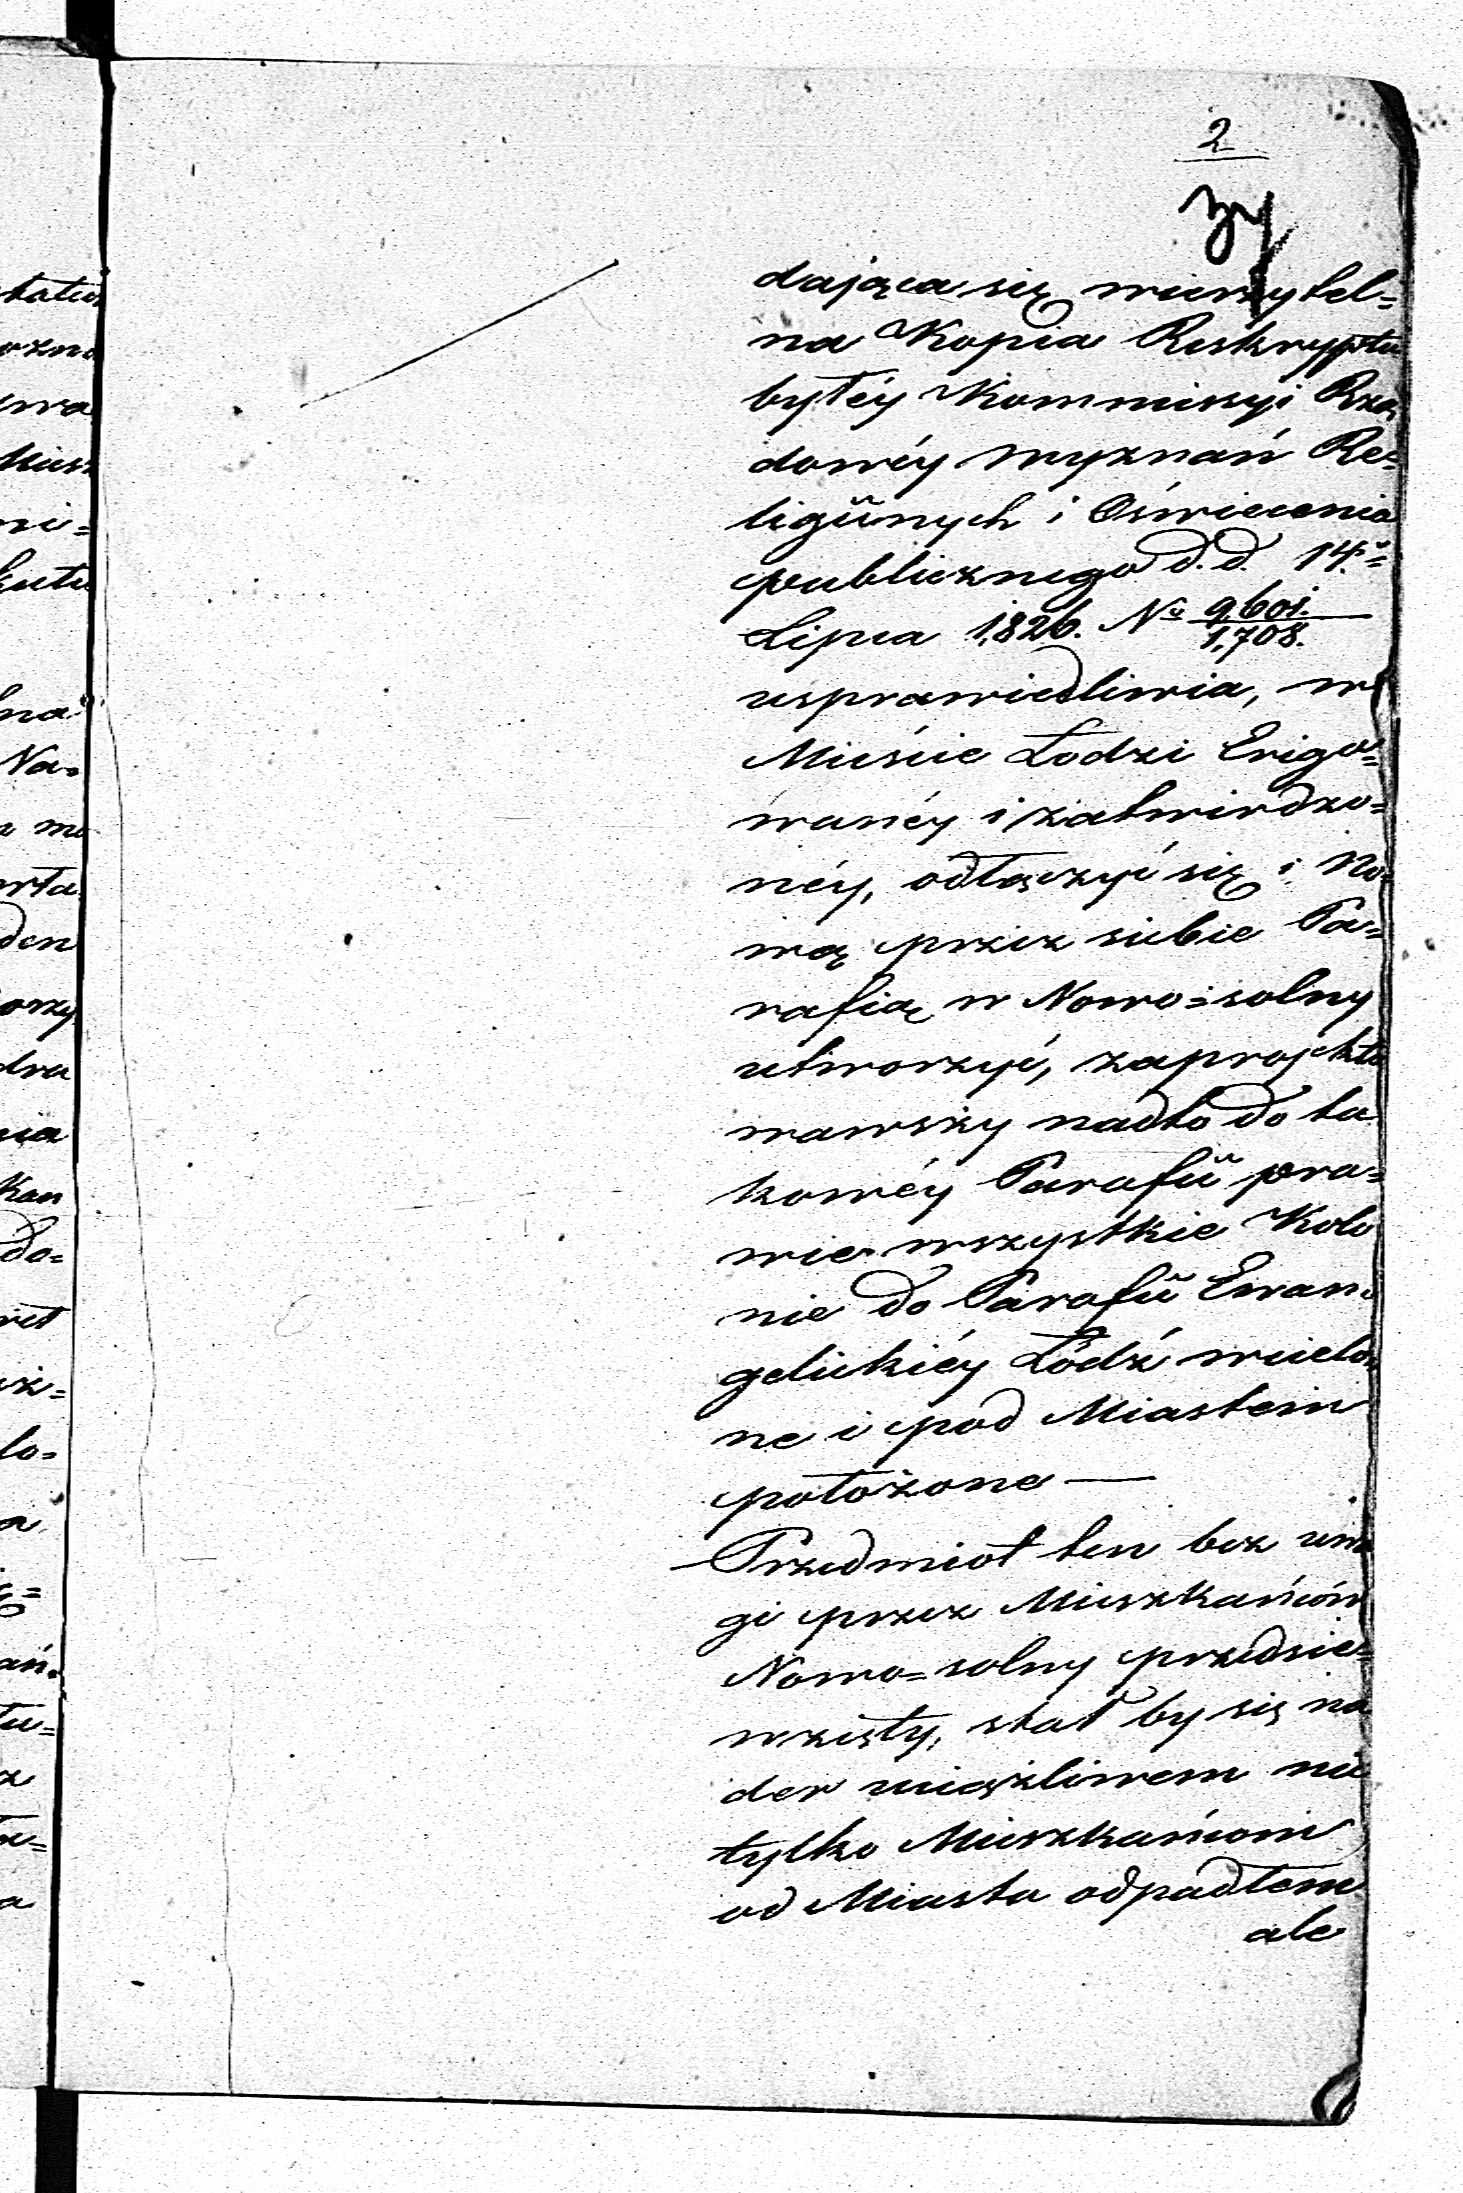 2
dająca się wierzytel=
na Kopia Reskryptu
byłéy Kommissyi Rzą
dowéy wyznań Re=
ligiinych i Oświecenia
publicznego d.d. 14.=
Lipca 1,826. No 9,601./1,708.
usprawiedliwia, w
Mieście Łodzi Erigo=
wanéy i zatwirdzo=
néy, odłączyć się i No=
wą przez siebie Pa=
rafią w Nowo=solny
utworzyć, zaprojekto
wawszy nadto do ta
kowéy Parafii pra=
wie wszystkie Kolo
nie do Parafii Ewan=
gelickiéy Łódź wcielo
ne i pod Miastem
położone —
Przedmiot ten bez uwa
gi przez Mieszkańców
Nowo=solny przedsie=
wzięty, stał by się na
der uciążliwem nie
tylko Mieszkańcom
od Miasta odpadłem
ale